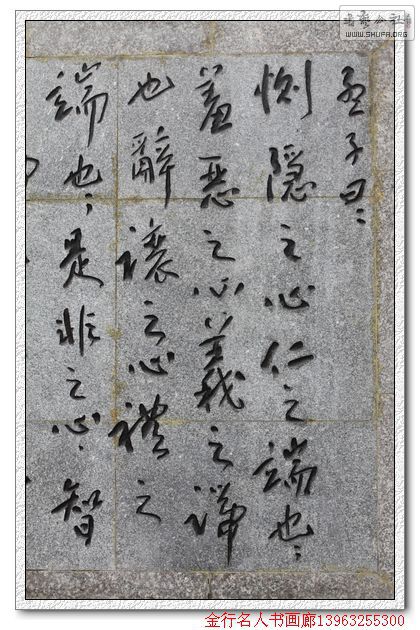 书法公社
WWW.SHUFA.ORG
孟子曰:
恻隐之心仁之端也;
羞惡之心義之端
也辭讓之心禮之
端也;是非之心,智
金行名人书画廊13963255300